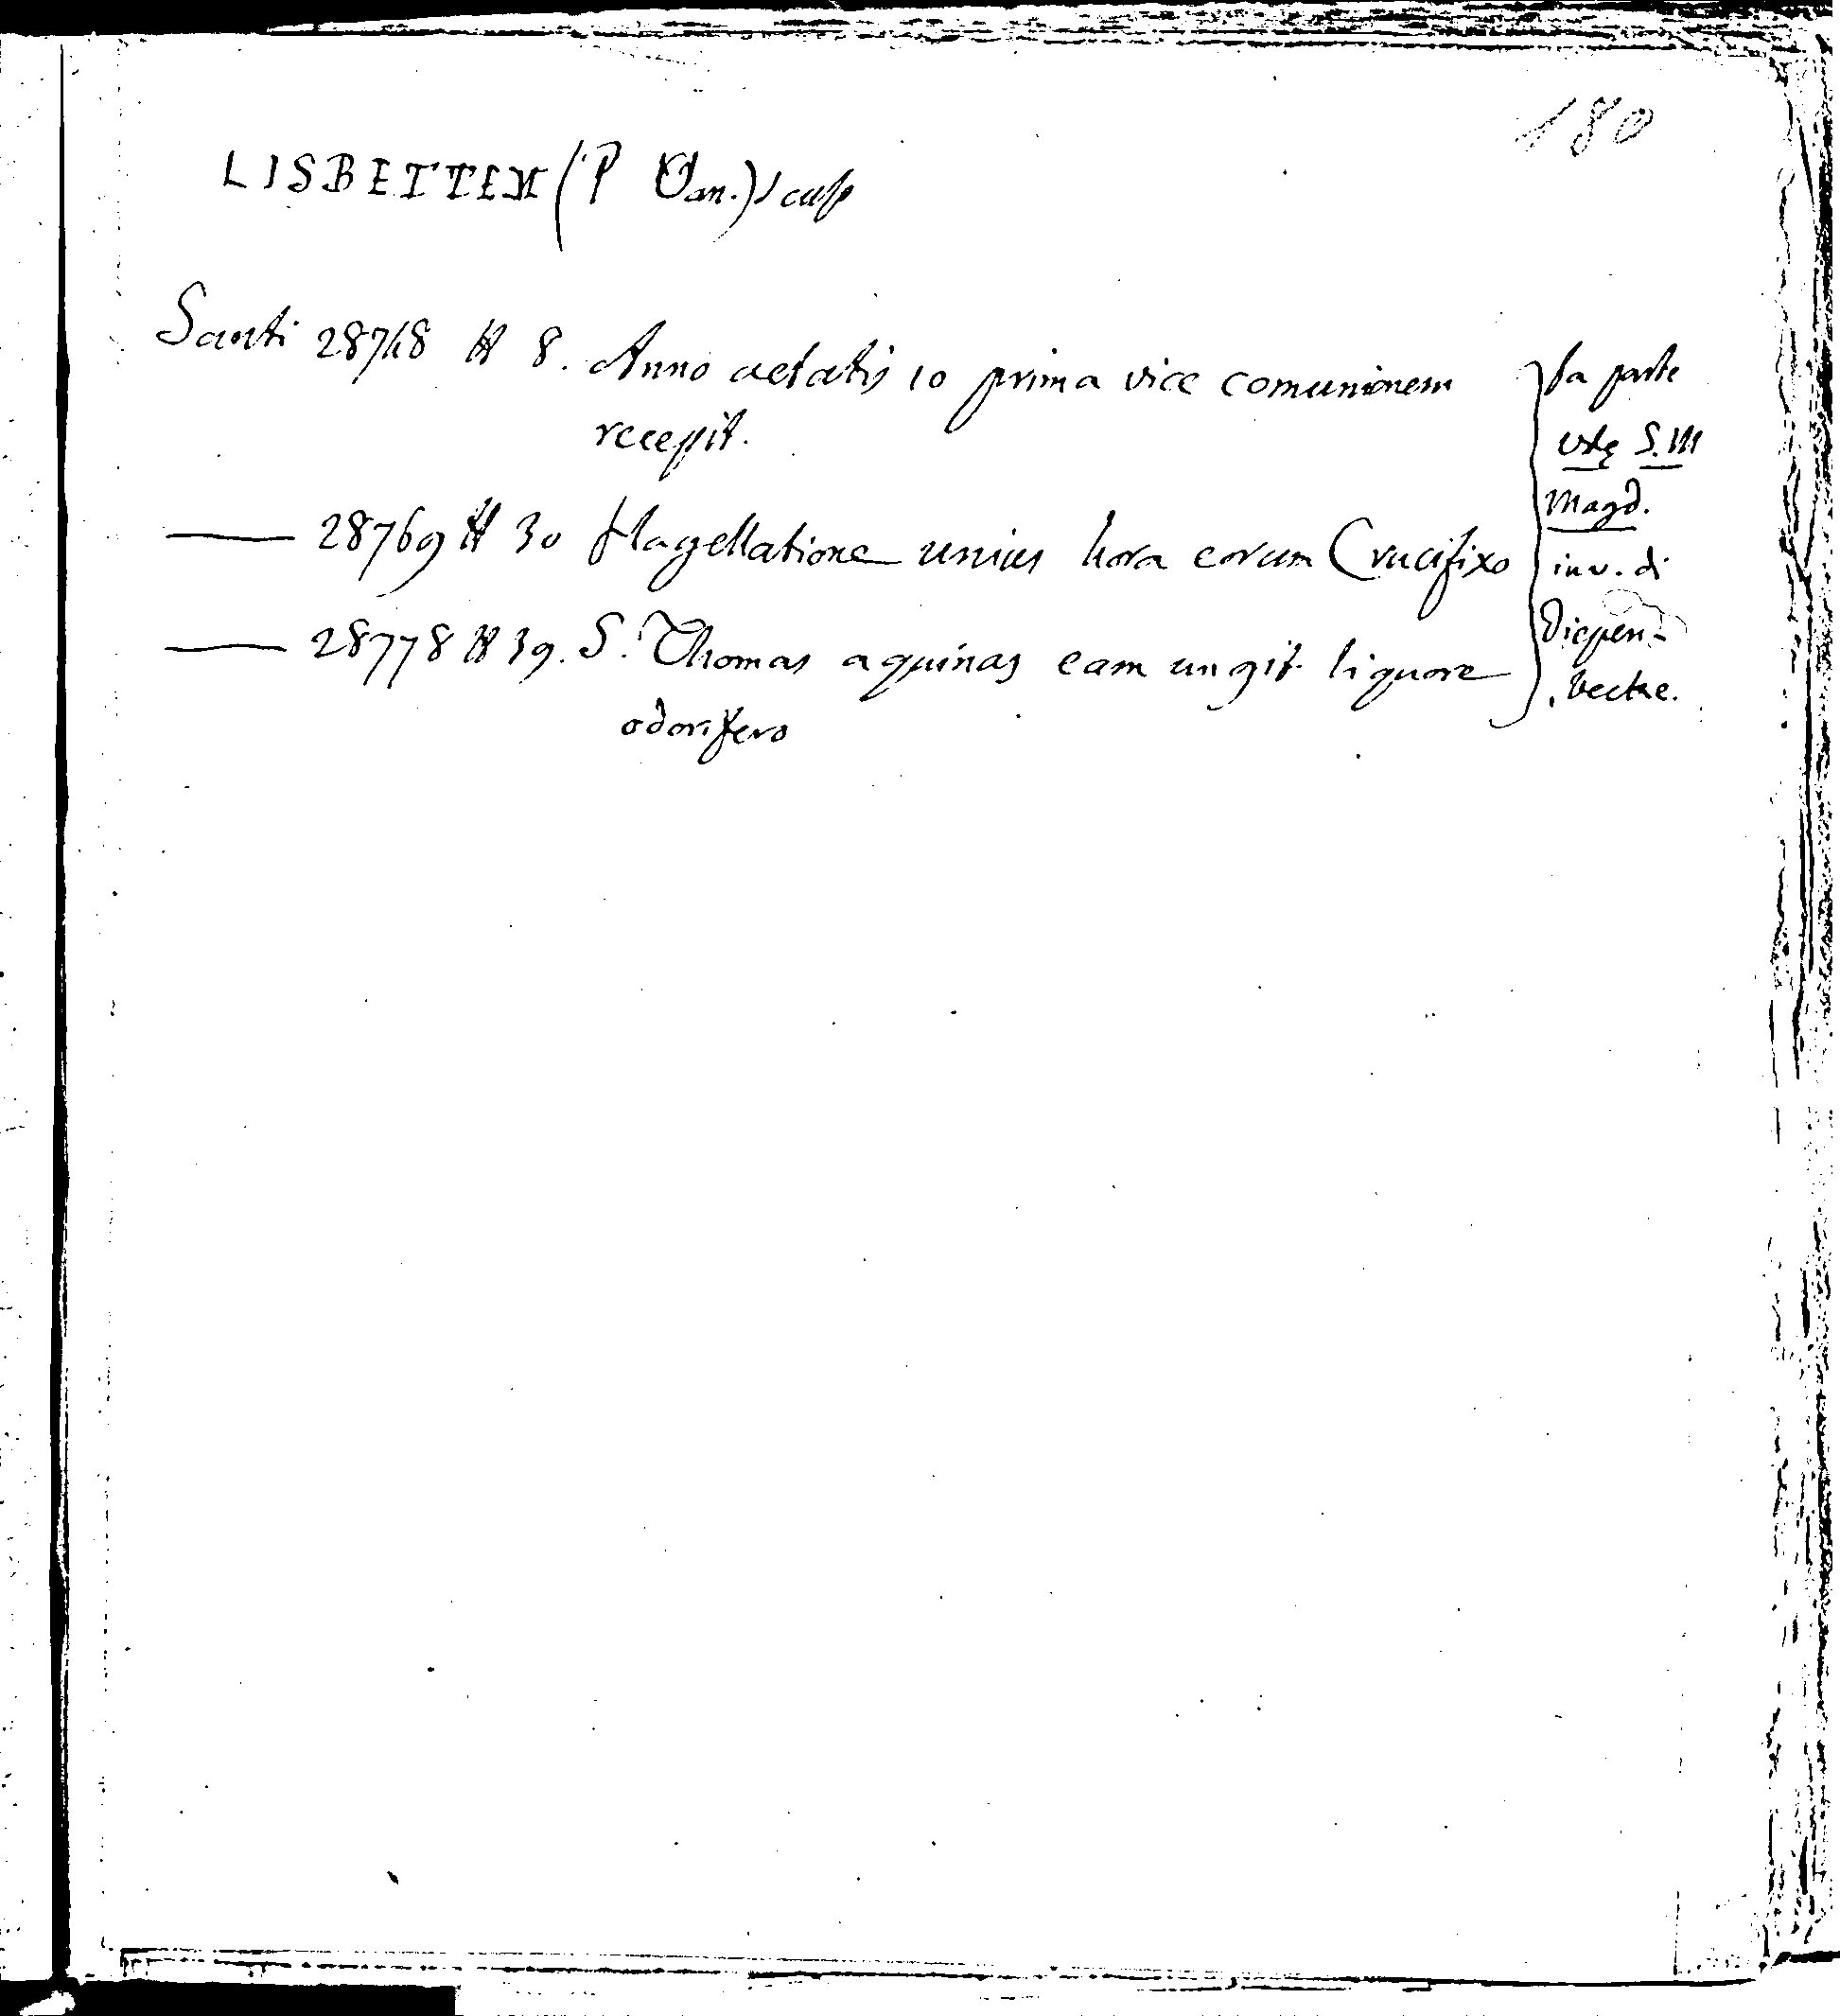 180
LISBETTEN (P Van.) sculp
Santi 28748 # 8. Anno aetatis 10 prima vice comunionem
recepit.
—— 28769 # 30 flagellatione unius hora coram Crucifixo
—— 28778 # 39. S. Thomas aquinas eam ungit liquore
odorifero
fa parte
S. M
Magd.
inv. di
Diepen-
beckе.